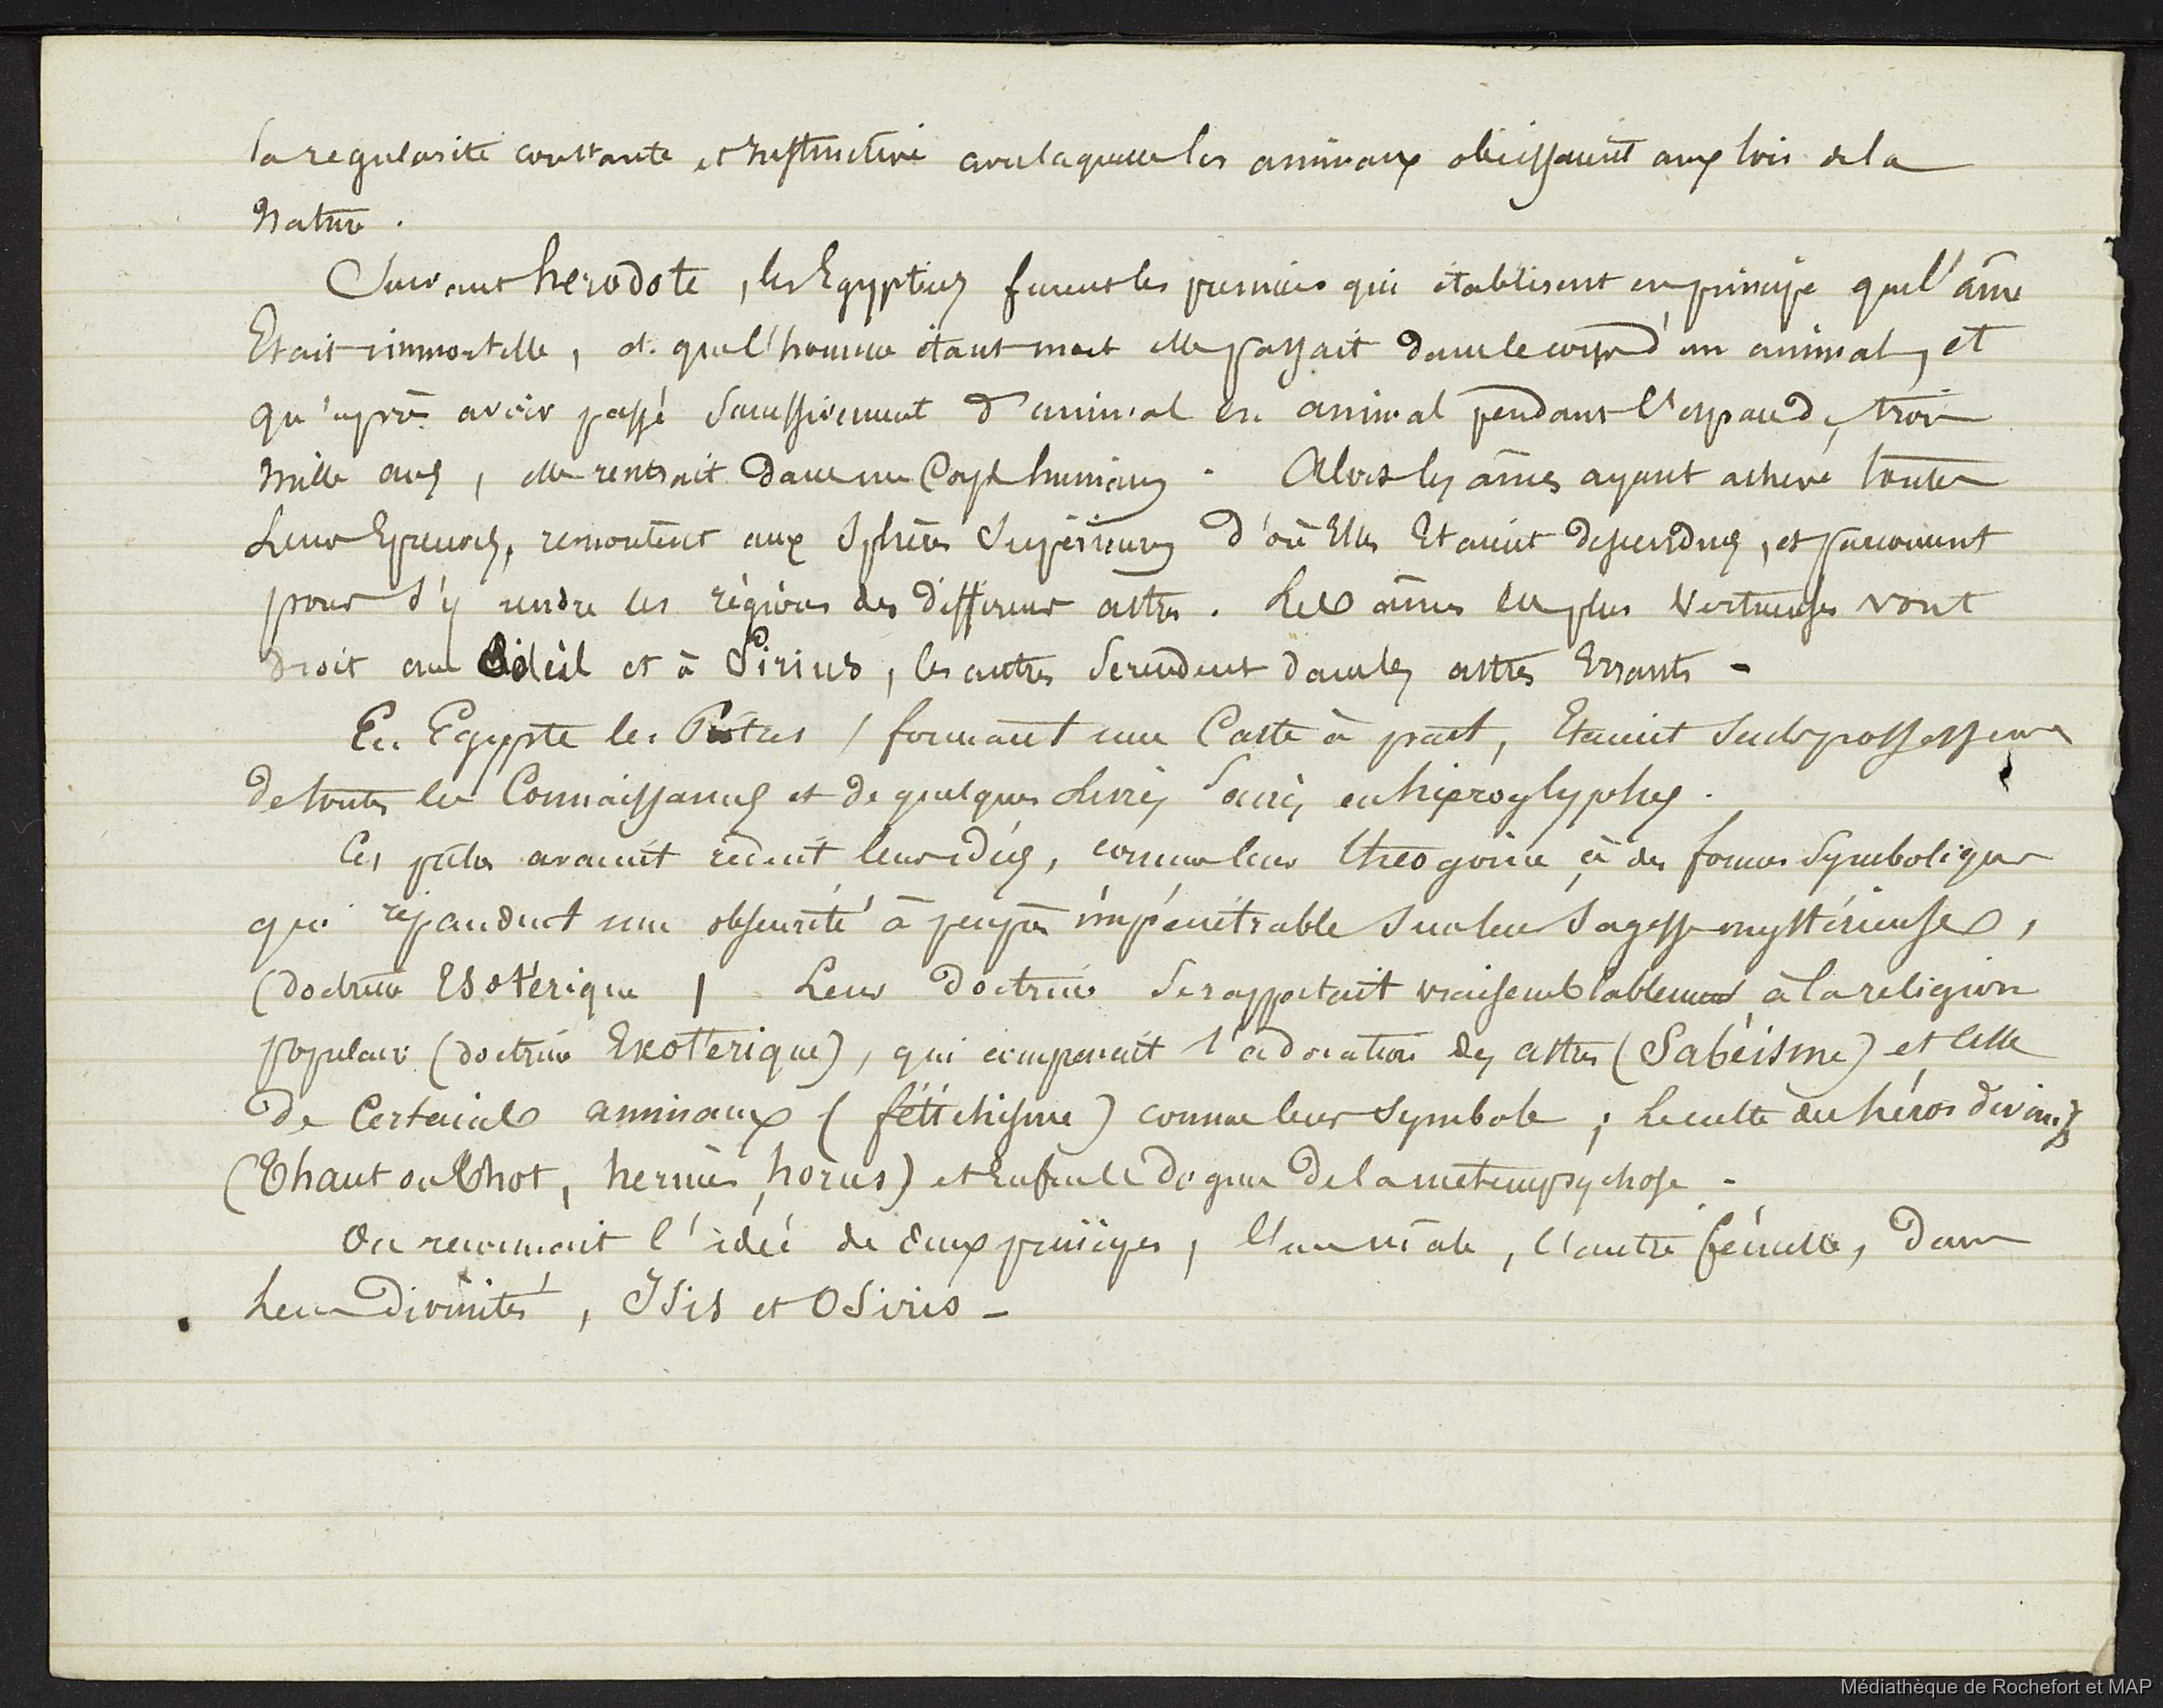 la regularité constante et instinctive avec laquelle les animaux obéissaient aux lois de la
Nature.
Suivant herodote, les Egyptiens furent les premiers qui établirent en principe que l'âme
Etait immortelle, et que l'homme étant mort elle passait dans le corps d'un animal, et
qu'après avoir passé successivement d'animal en animal pendant l'espace de trois
mille ans, elle rentrait dans un Corps humain. Alors les âmes ayant achevé toutes
Leurs Epreuves, remontent aux Sphères Supérieures d'où Elles Etaient descendues, et parcourent
pour s'y rendre les régions des différens astres. Les âmes les plus Vertueuses vont
droit au Soleil et à Sirius, les autres se rendent dans les astres Errants -
En Egypte les Prêtres / formant une Caste à part, Etaient seuls possesseurs
de toutes les Connaissances et de quelques Livres Sacrés en hiéroglyphes.
Ces prêtres avaient réduit leurs idées, comme leur théogonie, à des formes Symboliques
qui répandent une obscurité à peu près impénétrable sur leur Sagesse mystérieuse,
(doctrine Esotérique / Leur Doctrine se rapportait vraisemblablement à la religion
populaire (doctrine Exotérique), qui comprenait l'adoration des astres (Sabéisme) et celle
de Certains animaux (fétichisme) comme leur symbole ; le culte des héros divins
(Thaut ou Thot, hermès, horus) et Enfin le Dogme de la métempsychose.
On reconnait l'idée de deux principes, l'un mâle, l'autre femelle, dans
Leurs Divinités, Isis et Osiris -
Médiathèque de Rochefort et MAP